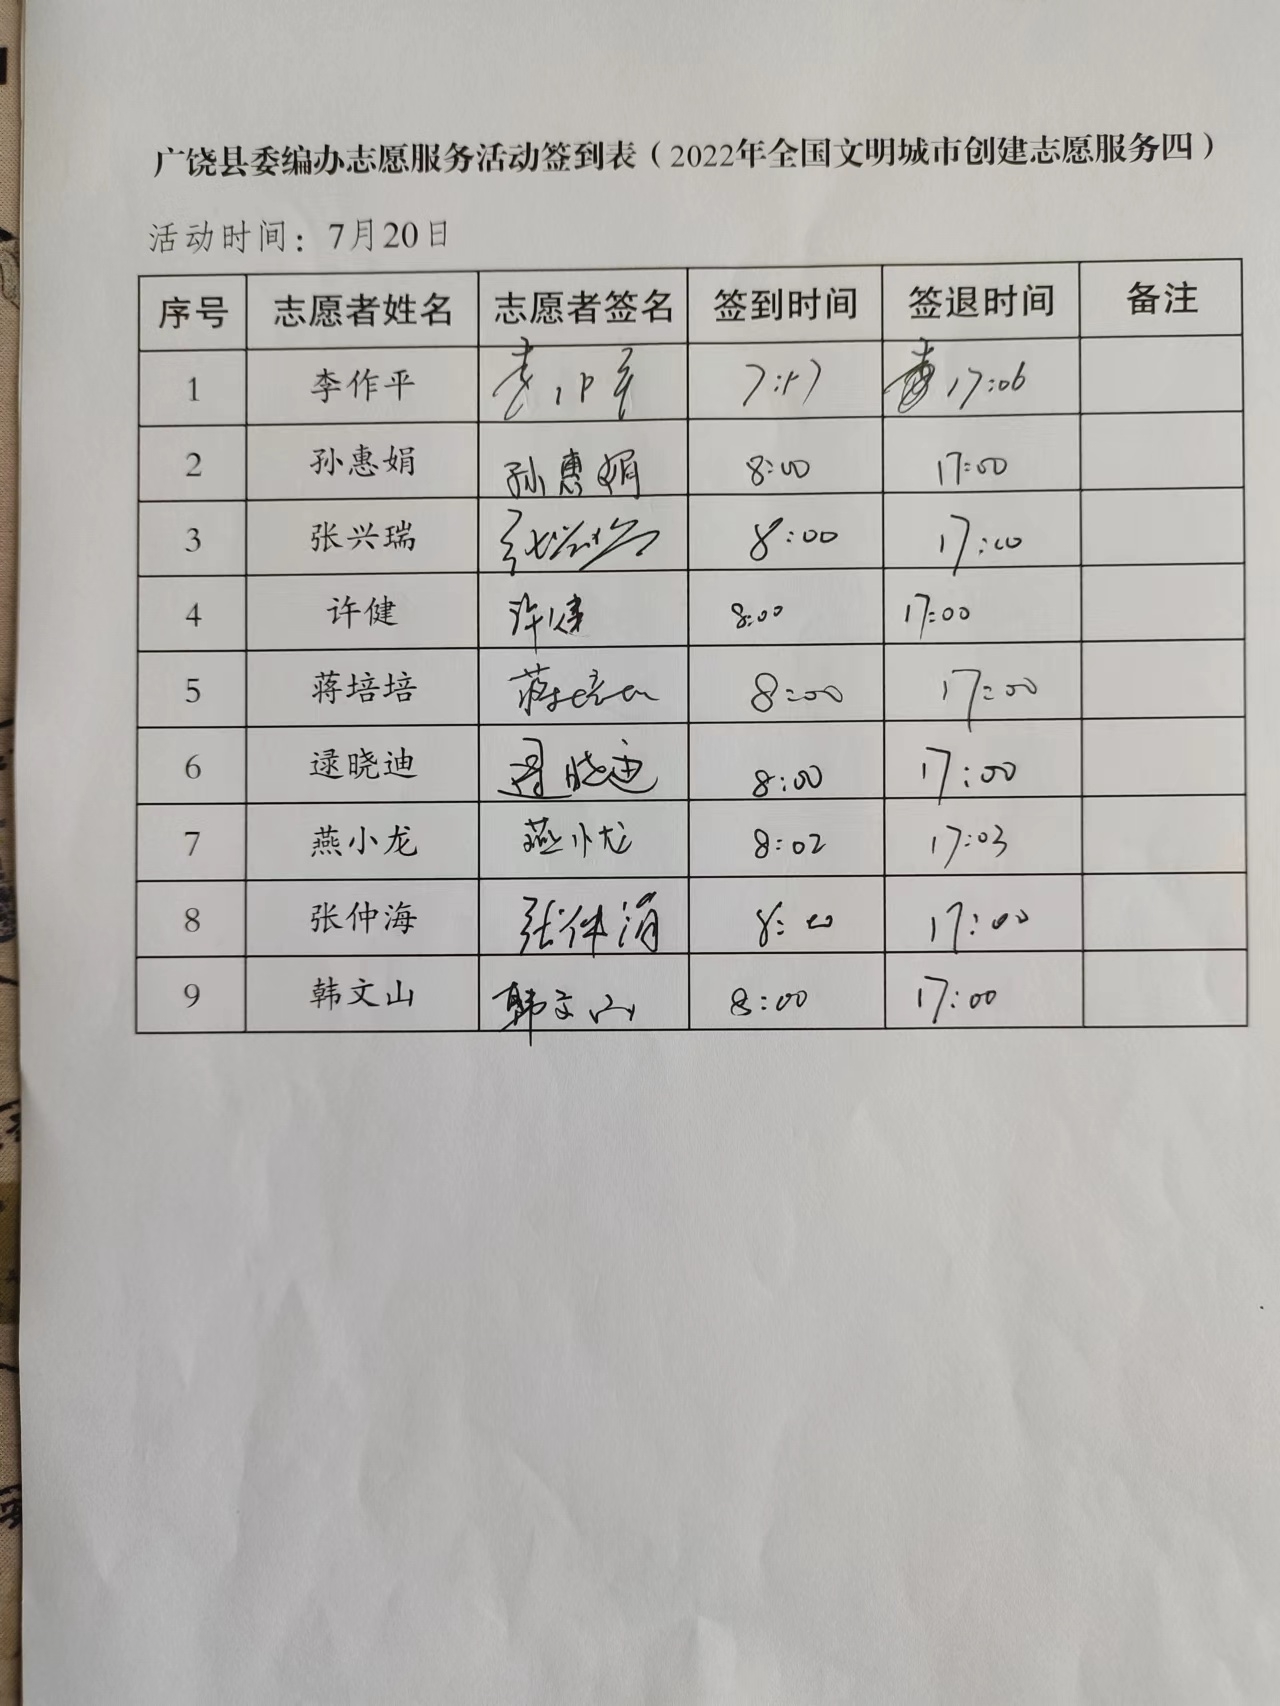 广饶县委编办志愿服务活动签到表（2022年全国文明城市创建志愿服务四）
活动时间：7月20日
序号 志愿者姓名 志愿者签名 签到时间 签退时间 备注
1 李作平 17:06
2 孙惠娟 孙惠娟 8:00 17:00
3 张兴瑞 张兴瑞 8:00 17:00
4 许健 许健 8:00 17:00
5 蒋培培 蒋培培 8:00 17:00
6 逯晓迪 逯晓迪 8:00 17:00
7 燕小龙 燕小龙 8:02 17:03
8 张仲海 张仲海 8:00 17:00
9 韩文山 韩文山 8:00 17:00